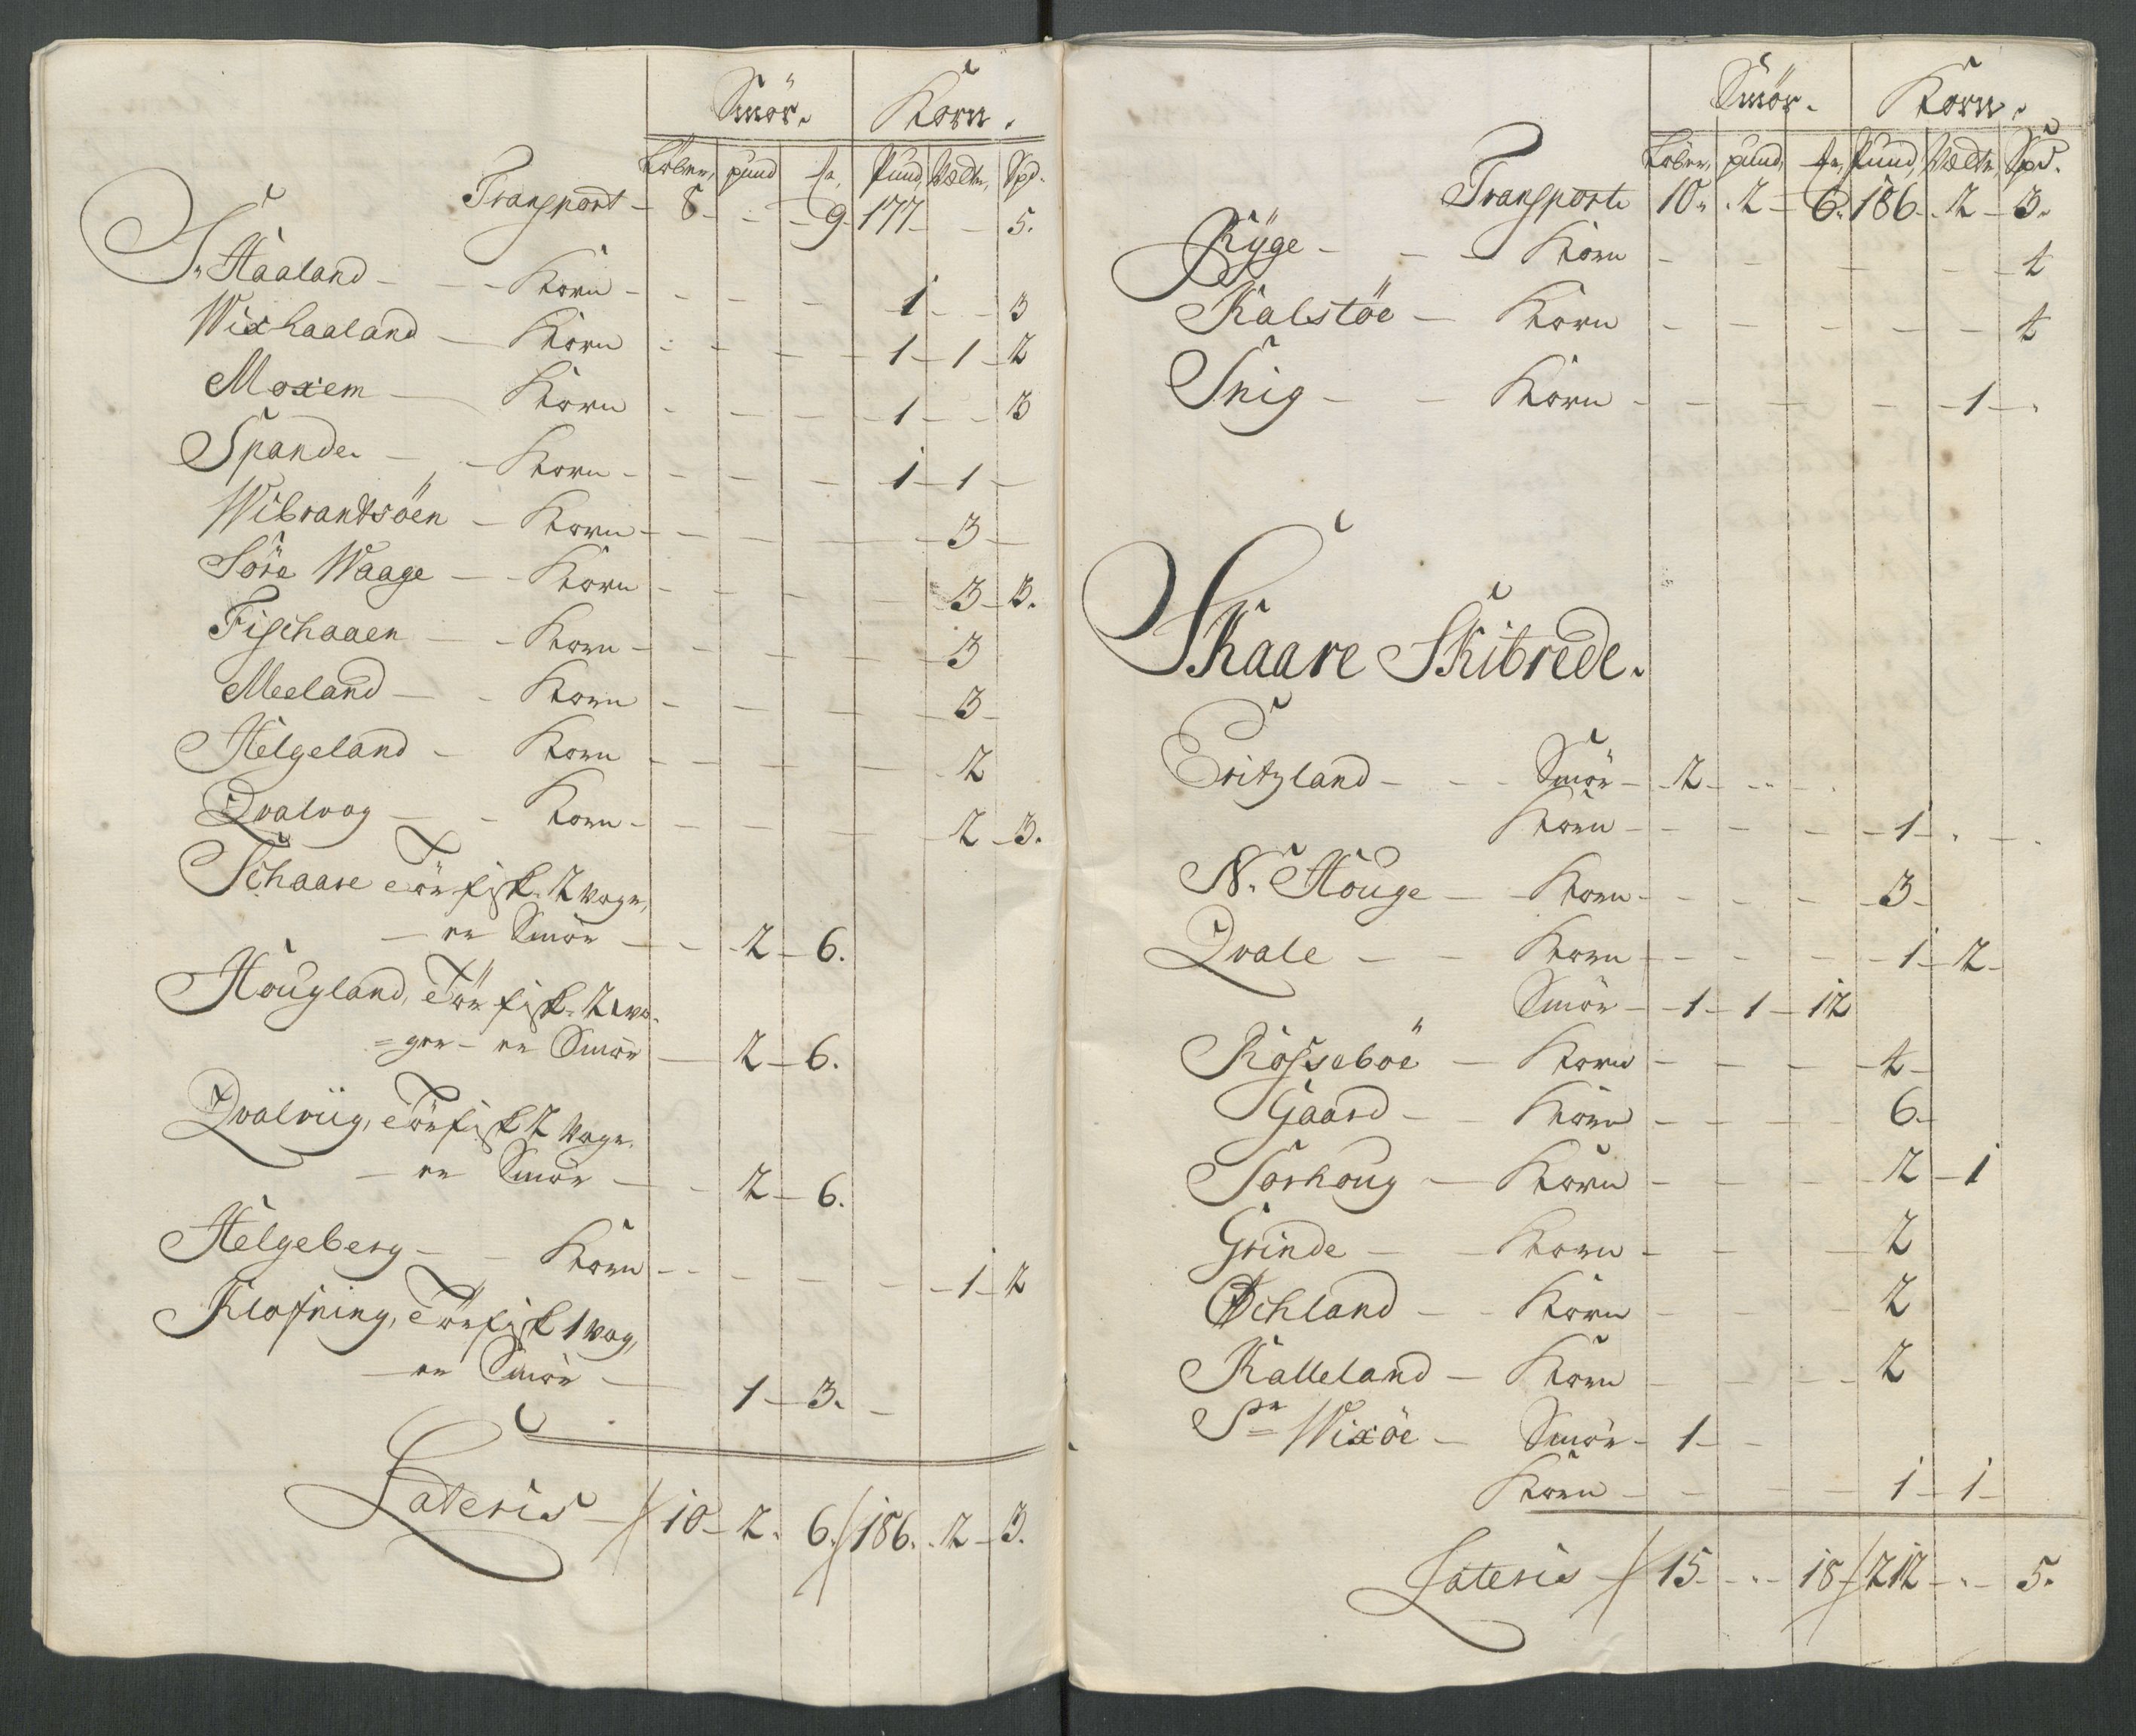 Smör. Korn.
Löber, pund, Pund, Vædtr, Spd.
Transport - 8 - - - 9 - 177 - - 5.
S. Haaland - - - Korn - - - - 1 - - 3
Wixhaaland - Korn - - - - 1 - 1 - 2
Moxem - Korn - - - - 1 - - 3
Spande. - - Korn - - - - 1 - 1 -
Wibrandsöen - Korn - - - - - 3 -
Söre Waage - - Korn - - - - 3 - 3.
Fischaaen - - Korn - - - - - 3
Meeland - - Korn - - - - 3 -
Helgeland - Korn - - - - - 2
Qvalvog - - Korn - - - - 2 - 3.
Schaare Törfisk. 2 voger,
- er Smör - - - 2 - 6.
Hougland, Törfisk. 2 vo-
=ger - er Smör - 2 - 6.
Qvalviig, Törfisk 2 voger.
- er Smör - - 2 - 6.
Helgeberg - - Korn - - - - - - 1 - 2
Klofning, Törfisk 1 vog,
- er Smör - 1 - 3. -
Lateris - 10 - 2. 6. 186. . 2 - 3.
Smör. Korn.
Löber, pund, Pund, Vædtr, Spd.
Transport 10. . 2 - 6. 186 - . 2 - 3.
Ryge - - - Korn - - - - - 4
Kalstöe - Korn - - - - - 4
Snig - - Korn - - - - - 1 - .
Skaare Skibrede.
Eritzland - - - Smör - - 2 - . . - .
Korn - - - - - 1 - . - .
N. Houge - - Korn - - - - - 3 -
Qvale - - Korn - - - - - 1 - 2 -
Smör - - 1 - 1 - 12
Rosseböe - Korn - - - - 4 -
Gaard - - Korn - - - - 6 -
Sorhoug - Korn - - - - 2 - 1
Grinde - - Korn - - - 2
Ochland - - Korn - - - 2
Kalleland - Korn - - - - 2
Sr Wixöe - Smör - 1 - -
Korn - - - - 1 - 1 -
Lateris - 15 - . . - 18 - 212 - . - 5.